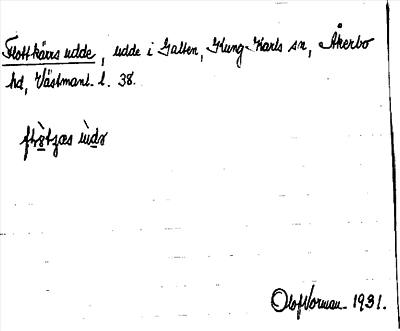 Flottkärrs udde, udde i Galten, Kung-Karls sn, Åkerbo
hd, Västmanl. l. 38.
Olof Norman 1931.